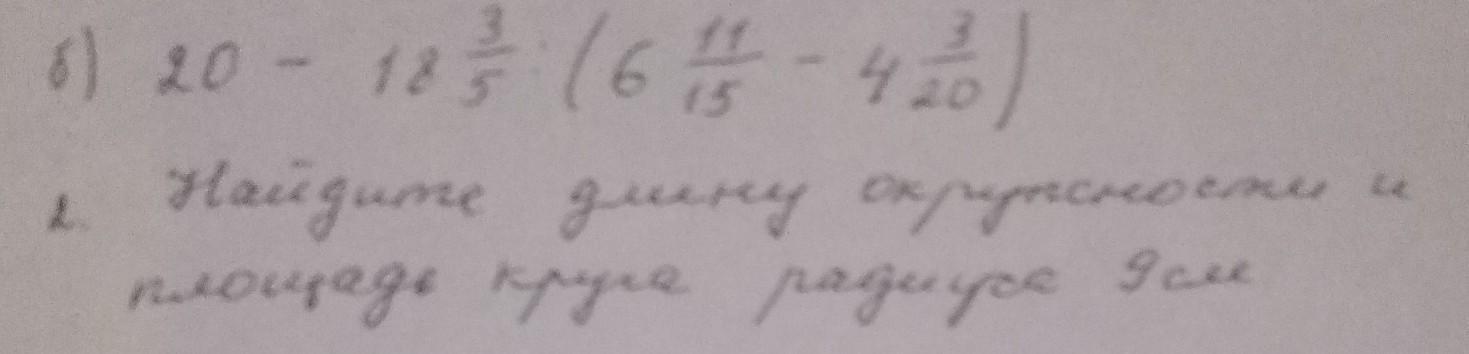 б) 20 - 18 3/5 : (6 11/15 - 4 3/20)
2. Найдите длину окружности и
площадь круга радиуса 9 см